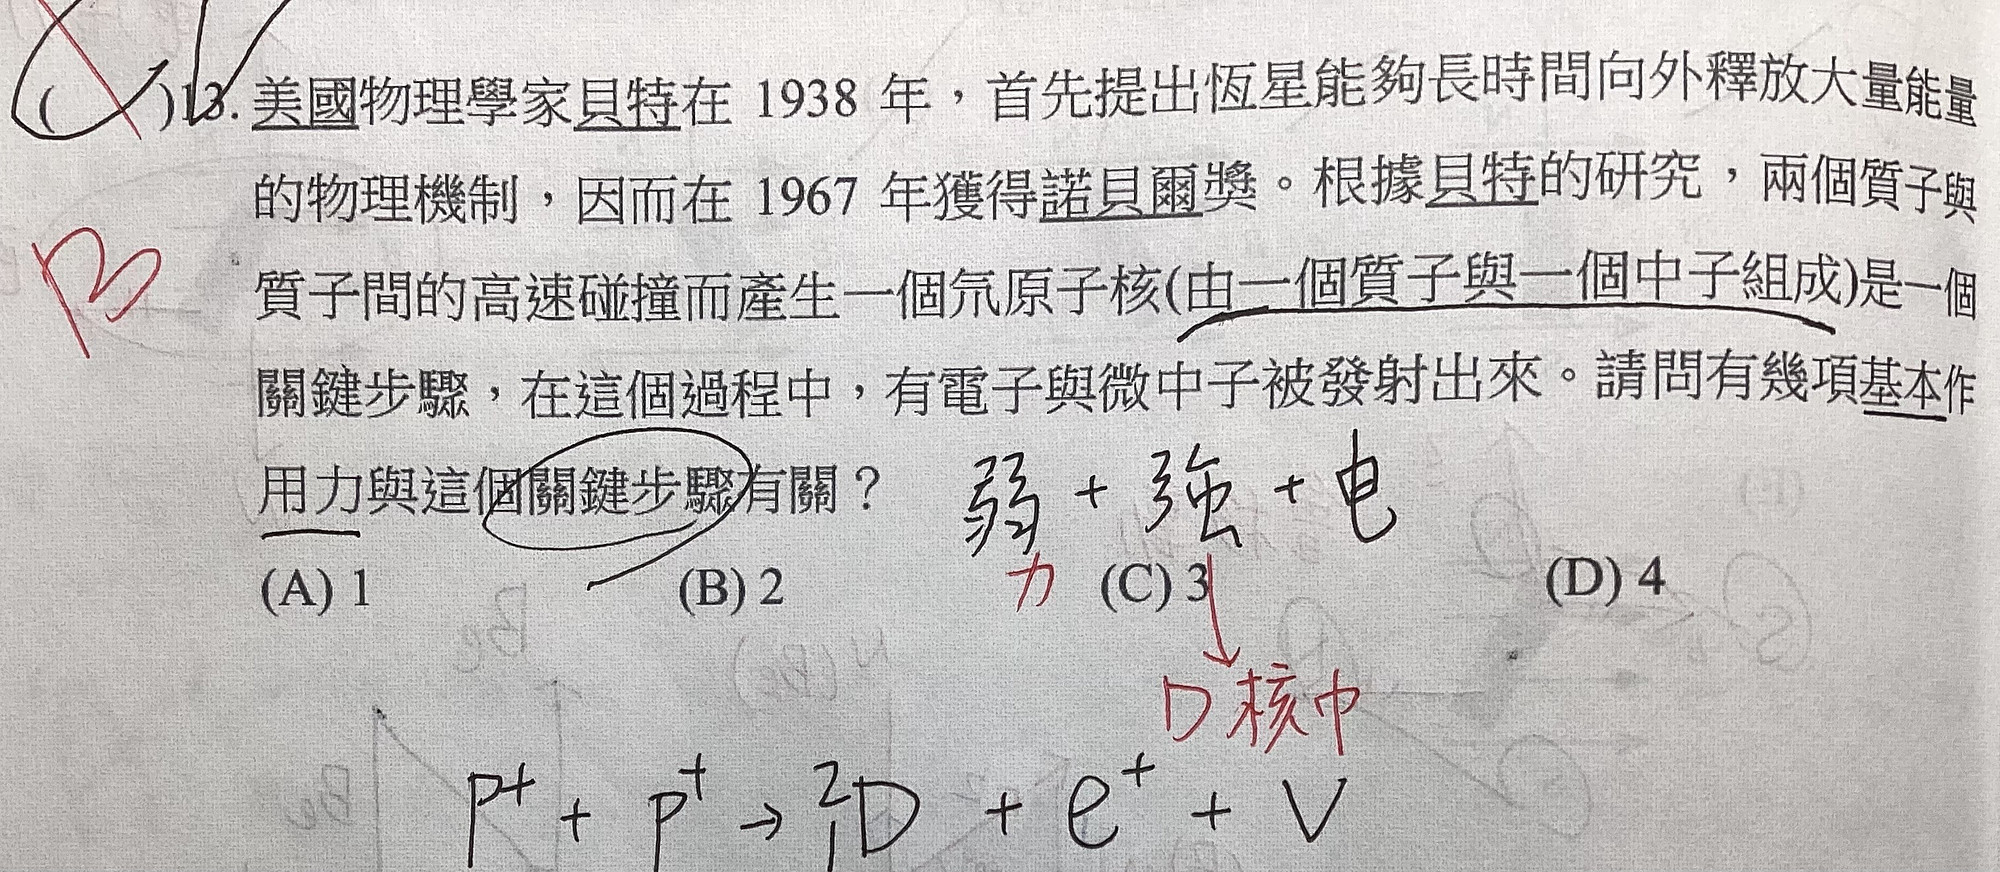 ( )13. 美國物理學家貝特在 1938 年，首先提出恆星能夠長時間向外釋放大量能量
的物理機制，因而在 1967 年獲得諾貝爾獎。根據貝特的研究，兩個質子與
B
質子間的高速碰撞而產生一個氘原子核(由一個質子與一個中子組成)是一個
關鍵步驟，在這個過程中，有電子與微中子被發射出來。請問有幾項基本作
用力與這個關鍵步驟有關？ 弱 + 強 + 电
(A) 1 (B) 2 力 (C) 3 (D) 4
D核中
P⁺ + P⁺ → ²₁D + e⁺ + ν